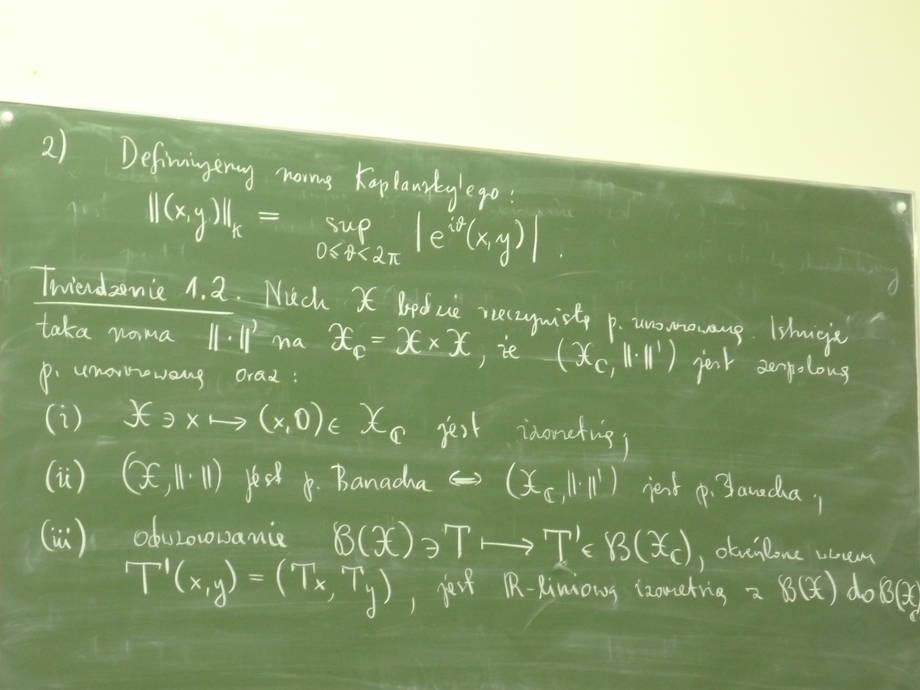 2) Definiujemy normę Kaplansky'ego:
‖(x,y)‖_K = sup_{0≤ϑ<2π} |e^{iϑ}(x,y)|.
Twierdzenie 1.2. Niech 𝒳 będzie rzeczywistą p. unormowaną. Istnieje
taka norma ‖·‖' na 𝒳_ℂ = 𝒳 × 𝒳, że (𝒳_ℂ, ‖·‖') jest zespoloną
p. unormowaną oraz:
(i) 𝒳 ∋ x ↦ (x,0) ∈ 𝒳_ℂ jest izometrią;
(ii) (𝒳, ‖·‖) jest p. Banacha ⇔ (𝒳_ℂ, ‖·‖') jest p. Banacha;
(iii) odwzorowanie ℬ(𝒳) ∋ T ⟼ T' ∈ ℬ(𝒳_ℂ), określone wzorem
T'(x,y) = (Tx, Ty), jest ℝ-liniową izometrią z ℬ(𝒳) do ℬ(𝒳_ℂ